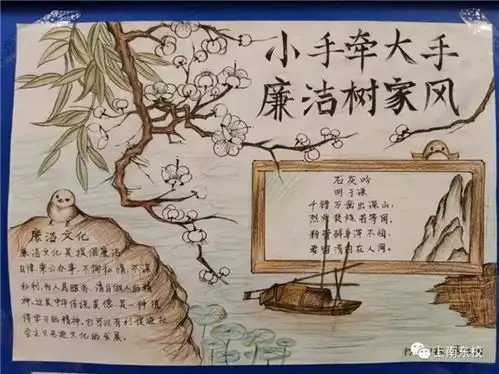 小手牵大手
廉洁树家风
石灰吟
明于谦
千锤万凿出深山，
烈火焚烧若等闲，
粉骨碎身浑不怕，
要留清白在人间。
廉洁文化
廉洁文化是提倡廉洁
自律秉公办事，不徇私情，不谋
私利，为人民服务，清白做人的精
神。这是中华传统美德，是一种值
得学习的精神，它可以有利促进社
会主义先进文化的发展。
上南东校